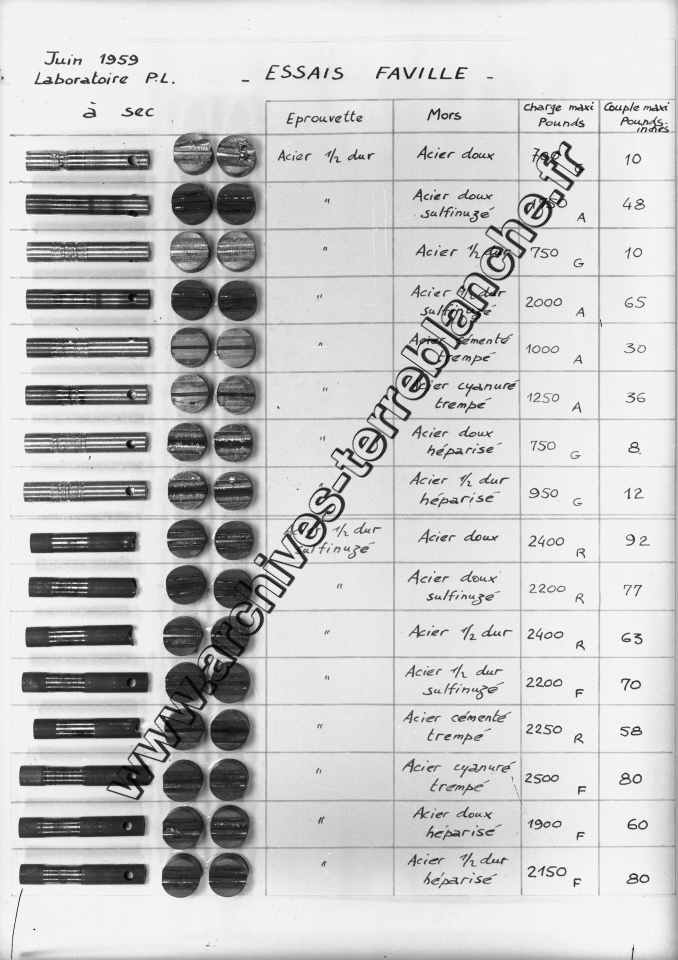 Juin 1959
Laboratoire P.L.
- ESSAIS FAVILLE -
à sec
Eprouvette Mors Charge maxi Pounds Couple maxi Pounds inches
Acier 1/2 dur Acier doux 10
" Acier doux sulfinuzé A 48
" Acier 1/2 dur 750 G 10
" Acier 1/2 dur sulfinuzé 2000 A 65
" Acier cémenté trempé 1000 A 30
" Acier cyanuré trempé 1250 A 36
" Acier doux héparisé 750 G 8
" Acier 1/2 dur héparisé 950 G 12
Acier 1/2 dur sulfinuzé Acier doux 2400 R 92
" Acier doux sulfinuzé 2200 R 77
" Acier 1/2 dur 2400 R 63
" Acier 1/2 dur sulfinuzé 2200 F 70
" Acier cémenté trempé 2250 R 58
" Acier cyanuré trempé 2500 F 80
" Acier doux héparisé 1900 F 60
" Acier 1/2 dur héparisé 2150 F 80
www.archives-terreblanche.fr